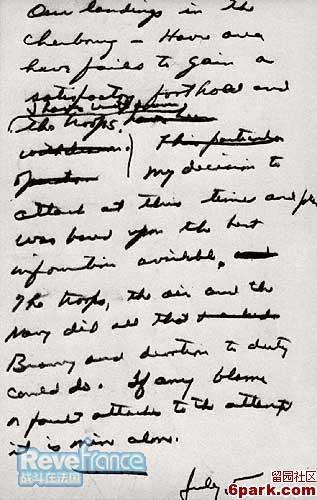 Our landings in the
Cherbourg - Havre area
have failed to gain a
satisfactory foothold and
I have withdrawn
the troops. have been
withdrawn. This particular
operation My decision to
attack at this time and place
was based upon the best
information available, and
The troops, the air and the
Navy did all that
Bravery and devotion to duty
could do. If any blame
or fault attaches to the attempt
it is mine alone.
July 5
ReveFrance
战斗在法国
留园社区
6park.com